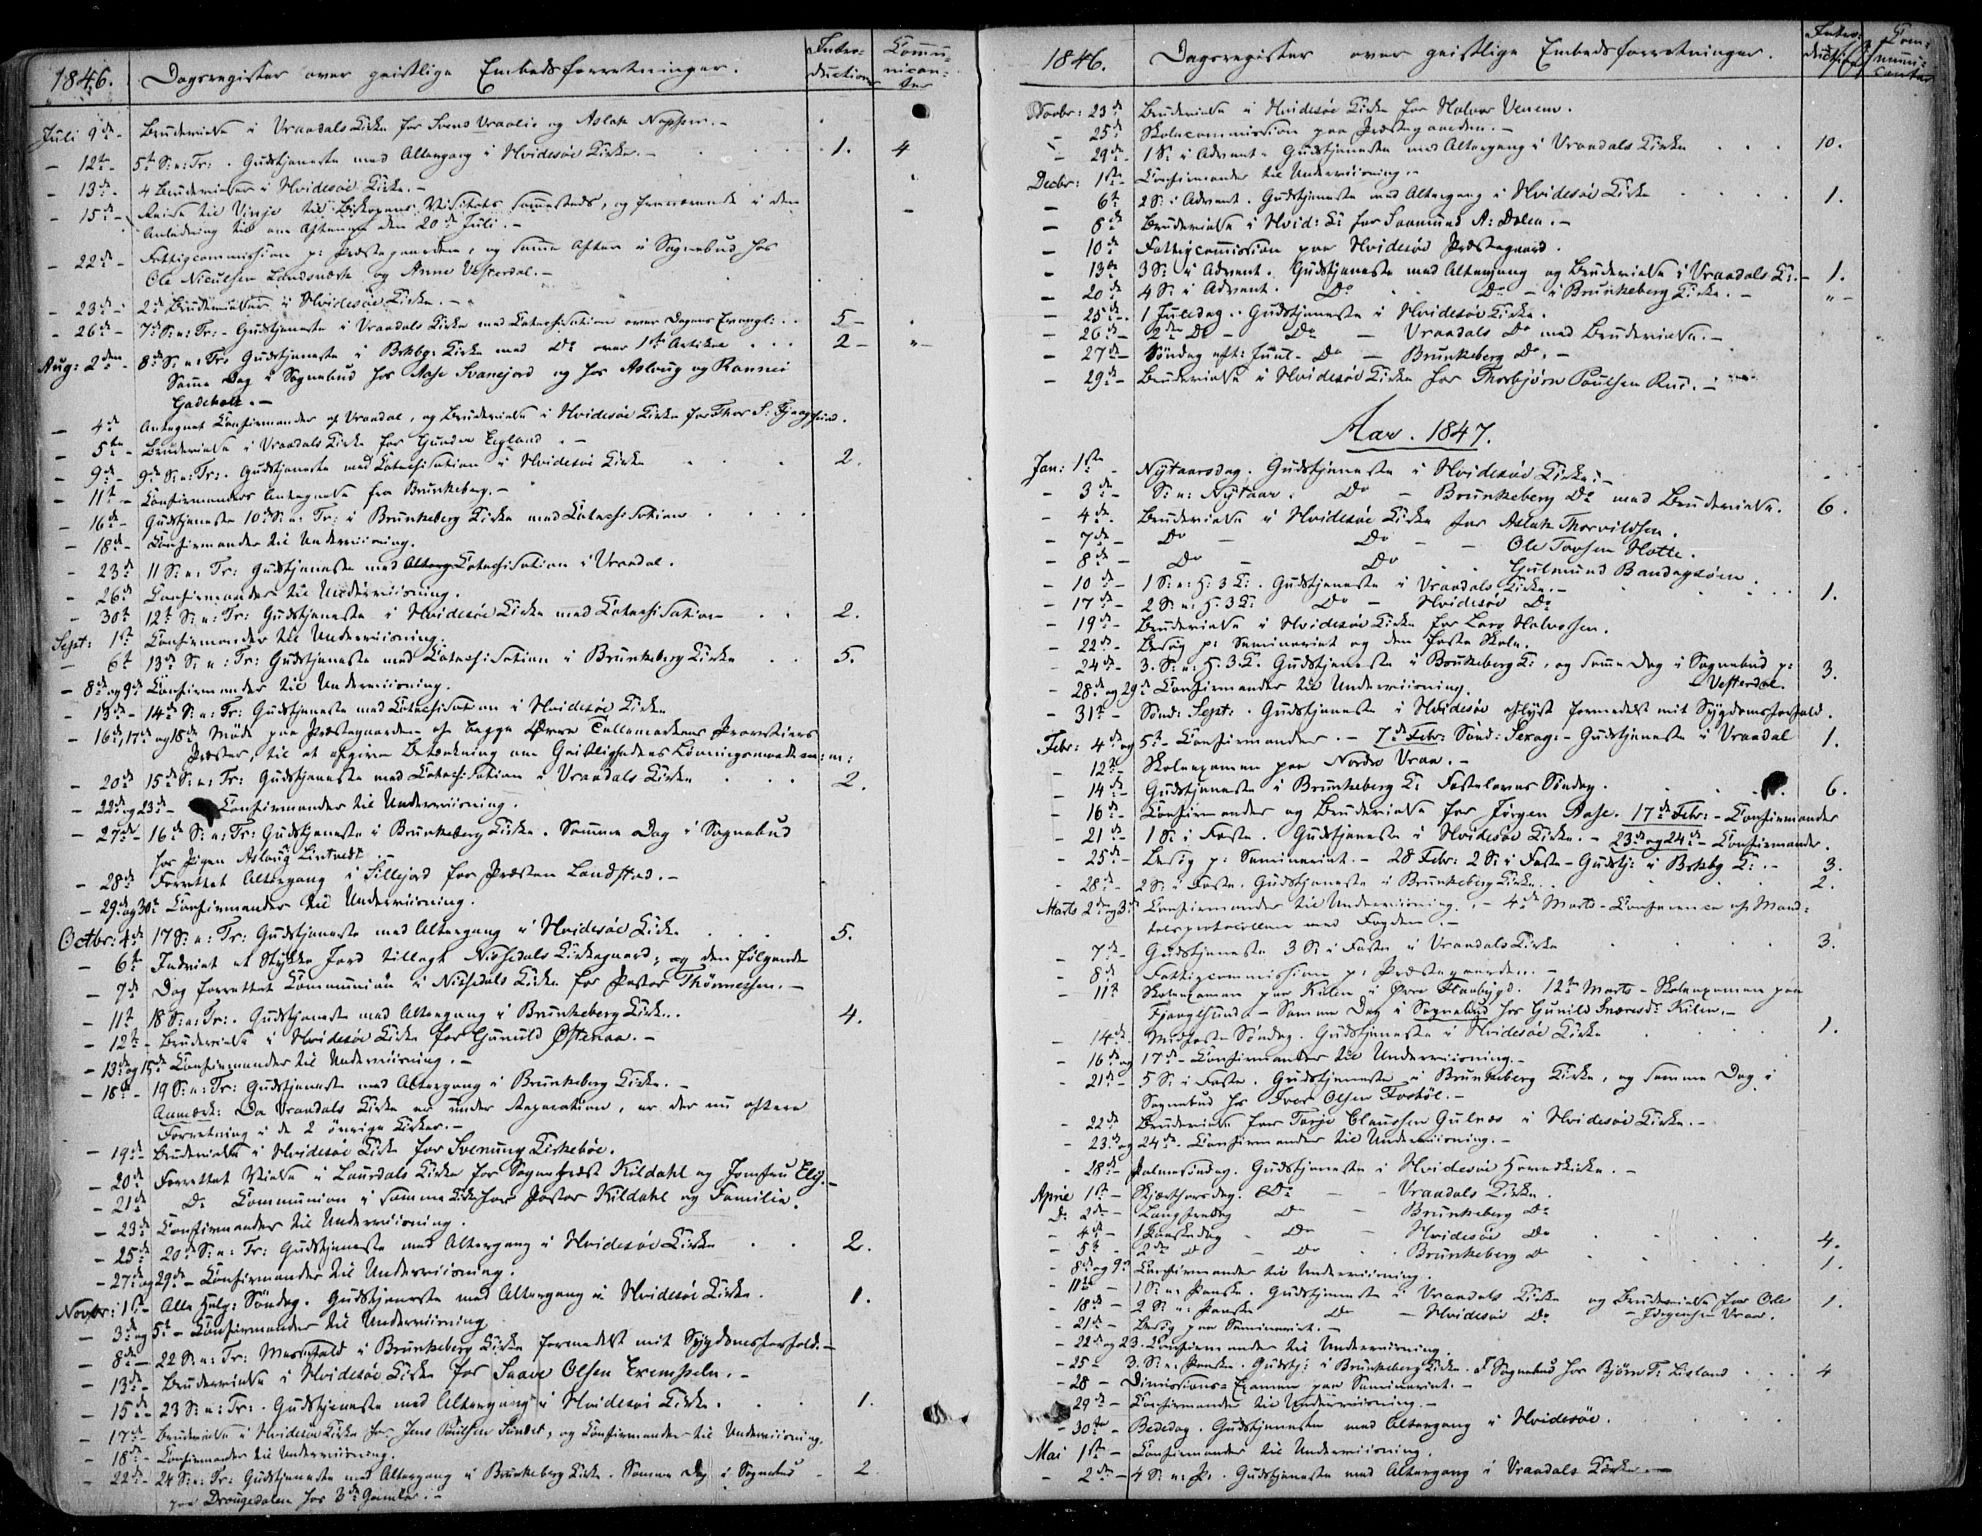 1846. Dagsregister over geistlige Embedsforretninger. Introductioner Communicanter
Juli 9de - Brudevielse i Vraadals Kirke for Svend Vraalie og Aslak
- 12te - 5te S: e: Tr: . Gudstjeneste med Altergang i Hvidesøe Kirke. - 1. 4
- 13de - 4 Brudevielser i Hvidesøe Kirke. -
- 15de - Reise til Vinje til Biskopens Visitats sammesteds, og fraværende i den
Anledning til om Aftenen den 20de Juli. -
- 22de - Fattigcommission p: Præstegaarden, og samme Aften i Sognebud hos
Ole Niculsen Landsnæsh og Anne Vesterdal. -
- 23de - 2de Brudevielser i Hvidesøe Kirke. -
- 26de - 7de S: e: Tr: - Gudstjeneste i Vraadals Kirke med Catechisation over Dagens Evangl: . . 5 -
Aug: 2den - 8de S: e: Tr: Gudstjeneste i Brkbg: Kirke med do over 1ste Artikel . . . 2 - " -
Samme Dag i Sognebud hos Aase Svanejord og hos Aslaug og Rannei
Gadeholt. -
- 4de - Antegnet Confirmander af Vraadal, og Brudevielse i Hvidesøe Kirke for Thor S:
- 5te - Brudevielse i Vraadals Kirke for Gunder Egland. -
- 9de - 9de S: e: Tr: . Gudstjeneste med Catechisation i Hvidesøe Kirke . . . 2.
- 11te - Confirmanders Antegnelse fra Brunkeberg. -
- 16de - Gudstjeneste 10de S: e: Tr: i Brunkeberg Kirke med Catechisation . . . .
- 18de - Confirmander til Underviisning.
- 23de 11 S: e: Tr: Gudstjeneste med Alterg Catechisation i Vraadal.
- 26de Confirmander til Underviisning.
- 30te 12te S: e: Tr: Gudstjeneste i Hvidesøe Kirke med Catechisation . . 2.
Sept: 1ste Confirmander til Underviisning.
- 6te 13de S: e: Tr: Gudstjeneste med Catechisation i Brunkeberg Kirke . . 5.
- 8de og 9de Confirmander til Underviisning.
- 13de - 14de S: e: Tr: Gudstjeneste med Catechisation i Hvidesøe Kirke
- 16de, 17de og 18de Møde paa Præstegaarden af begge Øvre Tellemarkens Provstiers
Præster, til at afgive Betænkning om Geistlighedens Lønningsmaade m: m:
- 20de 15de S: e: Tr: Gudstjeneste med Catechisation i Vraadals Kirke . . . 2.
- 22de og 23de - Confirmander til Underviisning.
- 27de - 16de S: e: Tr: Gudstjeneste i Brunkeberg Kirke. Samme Dag i Sognebud
hos Pigen Aslaug Lintvedt. -
- 28de Forrettet Altergang i Sillejord for Præsten Landstad. -
- 29de og 30te Confirmander til Underviisning.
Octbr: 4de 17 S: e: Tr: Gudstjeneste med Altergang i Hvidesøe Kirke . . . 5.
- 6te Indviet et Stykke Jord tillagt Nissedals Kirkegaard; og den følgende
- 7de Dag forrettet Communion i Nissedals Kirke for Pastor Thönnessen. -
- 11te 18 S: e: Tr: . Gudstjeneste med Altergang i Brunkeberg Kirke. . 4.
- 12te - Brudevielse i Hvidesøe Kirke for Gunuld Østenaa. -
- 13de og 15de Confirmander til Underviisning. -
- 18de - 19 S: e: Tr: Gudstjeneste med Altergang i Brunkeberg Kirke. -
Anmærk: Da Vraadals Kirke er under Reparation, er der nu oftere
Forretning i de 2 øvrige Kirker. -
- 19de - Brudevielse i Hvidesøe Kirke for Svenung Kirkebøe.
- 20de - Forrettet Vielse i Laurdals Kirke for Sognepræst Kildahl og Jomfru Ely. -
- 21de Do Communion i samme Kirke for Pastor Kildahl og Familie.
- 23de Confirmander til Underviisning.
- 25de 20de S: e: Tr: Gudstjeneste med Altergang i Hvidesøe Kirke . . 2.
- 27de og 29de - Confirmander til Underviisning.
Novbr: 1ste - Alle Helg: Søndag. Gudstjeneste med Altergang i Hvidesøe Kirke. 1.
- 3de og 5te - Confirmander til Underviisning
- 8de - 22 S: e: Tr: Messefald i Brunkeberg Kirke formedelst mit Sygdomsforfald. -
- 13de - Brudevielse i Hvidesøe Kirke for Saave Olsen -
- 15de - 23 S: e: Tr: . Gudstjeneste med Altergang i Hvidesøe Kirke. . . 1.
- 17de - Brudevielse i Hvidesøe Kirke for Jens Poulsen Sundet, og Confirmander til Underviisning.
- 18de - Confirmander til Underviisning.
- 22de - 24 S: e: Tr: Gudstjeneste med Altergang i Brunkeberg Kirke. Samme Dag i Sognebud - 2
paa Draugedalen hos 3de Gamler. -
1846. Dagsregister over geistlige Embedsforretninger. Introductioner Communicanter
Novbr: 23de Brudevielse i Hvidesøe Kirke for Halvor Venem.
25de Skolecommission paa Præstegaarden. -
- 29de - 1 S: i Advent - Gudstjeneste med Altergang i Vraadals Kirke . . . 10.
Decbr: 1ste - Confirmander til Underviisning. -
- 6te 2 S: i Advent. Gudstjeneste med Altergang i Hvidesøe Kirke . . . 1.
- 8de Brudevielse i Hvid: K: for Saamund A: Dalen. -
- 10de Fattigcommission paa Hvidesøe Præstegaard.
- 13de 3 S: i Advent. Gudstjeneste med Altergang og Brudevielse i Vraadals K: - 1.
- 20de 4 S: i Advent. Do . Do - i Brunkeberg Kirke. - " -
- 25de - 1 Juledag. Gudstjeneste i Hvidesøe Kirke.
- 26de - 2den Do - Do - Vraadals Do med Brudevielse. -
- 27de - Søndag eft: Juul - Do - Brunkeberg Do. -
- 29de - Brudevielse i Hvidesøe Kirke for Thorbjørn Poulsen Rui. -
Aar. 1847.
Jan: 1ste - Nytaarsdag. Gudstjeneste i Hvidesøe Kirke. -
- 3de - S: e: Nytaar. Do - Brunkeberg Do med Brudevielse. 6.
- 4de. Brudevielse i Hvidesøe Kirke for Aslak Thorvildsen.
- 7de - Do - Do - - Ole Tovsen Hotte.
- 8de - Do Do . . Gulmund Bandagsløen.
- 10de - 1 S: e: H: 3 K: . Gudstjeneste i Vraadals Kirke. -
- 17de - 2 S: e: H: 3 K: Do - Hvidesøe Do . . . 1.
- 19de - Brudevielse i Hvidesøe Kirke for Lars Halvorsen.
- 22de - Besøg p: Seminariet og den faste Skole.
- 24de - 3. S: e: H: 3 K: Gudstjeneste i Brunkeberg K: , og samme Dag i Sognebud p: Vesterdal. 3.
- 28de og 29de Confirmander til Underviisning.
- 31te - Sønd: Sept: . Gudstjeneste i Hvidesøe aflyst formedelst mit Sygdomsforfald.
Febr: 4de og 5te - Confirmander. - 7de Febr: Sønd: Sexag: - Gudstjeneste i Vraadal 1.
- 12te - Skoleexamen paa Nordre Vraa. -
- 14de - Gudstjeneste i Brunkeberg K: Fastelavns Søndag. . . . 6.
- 16de - Confirmander og Brudevielse for Jørgen Aase. 17de Febr: - Confirmander
- 21de - 1 S: i Faste. Gudstjeneste i Hvidesøe Kirke. - 23de og 24de - Confirmander.
- 25de - Besøg p: Seminariet. - 28 Febr: 2 S: i Faste - Gudstj: i Brkbg K: - 3.
- 28de - 2 S: i Faste. Gudstjeneste i Brunkeberg Kirke. . . 2.
Marts 2den og 3de Confirmander til Underviisning. - 4de Marts - Conference af Mand-
talsprotocollen med Fogden. -
- 7de - Gudstjeneste 3 S: i Faste i Vraadals Kirke . . . 3.
- 8de Fattigcommission p: Præstegaarden. -
- 11te Skoleexamen paa Kilen i Øvre Flaabygd. 12te Marts - Skoleexamen paa
Fjangesund - Samme Dag i Sognebud hos Gunild Kilen. -
- 14de. Midfaste Søndag. Gudstjeneste i Hvidesøe Kirke . . 1.
- 16de og 17de - Confirmander til Underviisning. -
- 21de - 5 S: i Faste. Gudstjeneste i Brunkeberg Kirke, og samme Dag i
Sognebud hos Iver Olsen Fostøl. -
- 22de Brudevielse for Tarje Claussen Gulnæs i Hvidesøe Kirke. -
- 23de og 24de. Confirmander til Underviisning. -
- 28de - Palmesøndag. Gudstjeneste i Hvidesøe Hovedkirke. -
April 1ste - Skjærthorsdag. Do - - Vraadals Kirke.
D: 2den - Langfredag Do - Brunkeberg Do
- 4de - 1 Paaskedag - Do - Hvidesøe Do . . 4.
- 5te - 2de D - Do . . Brunkeberg D . . 1.
- 8de og 9de Confirmander til Underviisning.
- 11te - 1 S: e: Paaske. Gudstjeneste i Vraadals Kirke og Brudevielse for Ole
- 18de - 2 S: e: Paaske Do - Hvidesøe Do - Jørgensen Vraa. 1.
- 21de - Besøg paa Seminariet. -
- 22de og 23. Confirmander til Underviisning.
- 25 - 3. S: e. Paaske. Gudstj: i Brunkeberg Kirke. I Sognebud hos Bjørn T: Lisland . . . 4
- 28 - Dimissions-Examen paa Seminariet. -
- 29de - Confirmander til Underviisning. -
- 30te - Bededag. Gudstjeneste med Altergang i Hvidesøe.
Mai 1ste - Confirmander til Underviisning.
- 2den - 4 S: e: P: . Gudstjeneste med Altergang i Vraadals Kirke. -